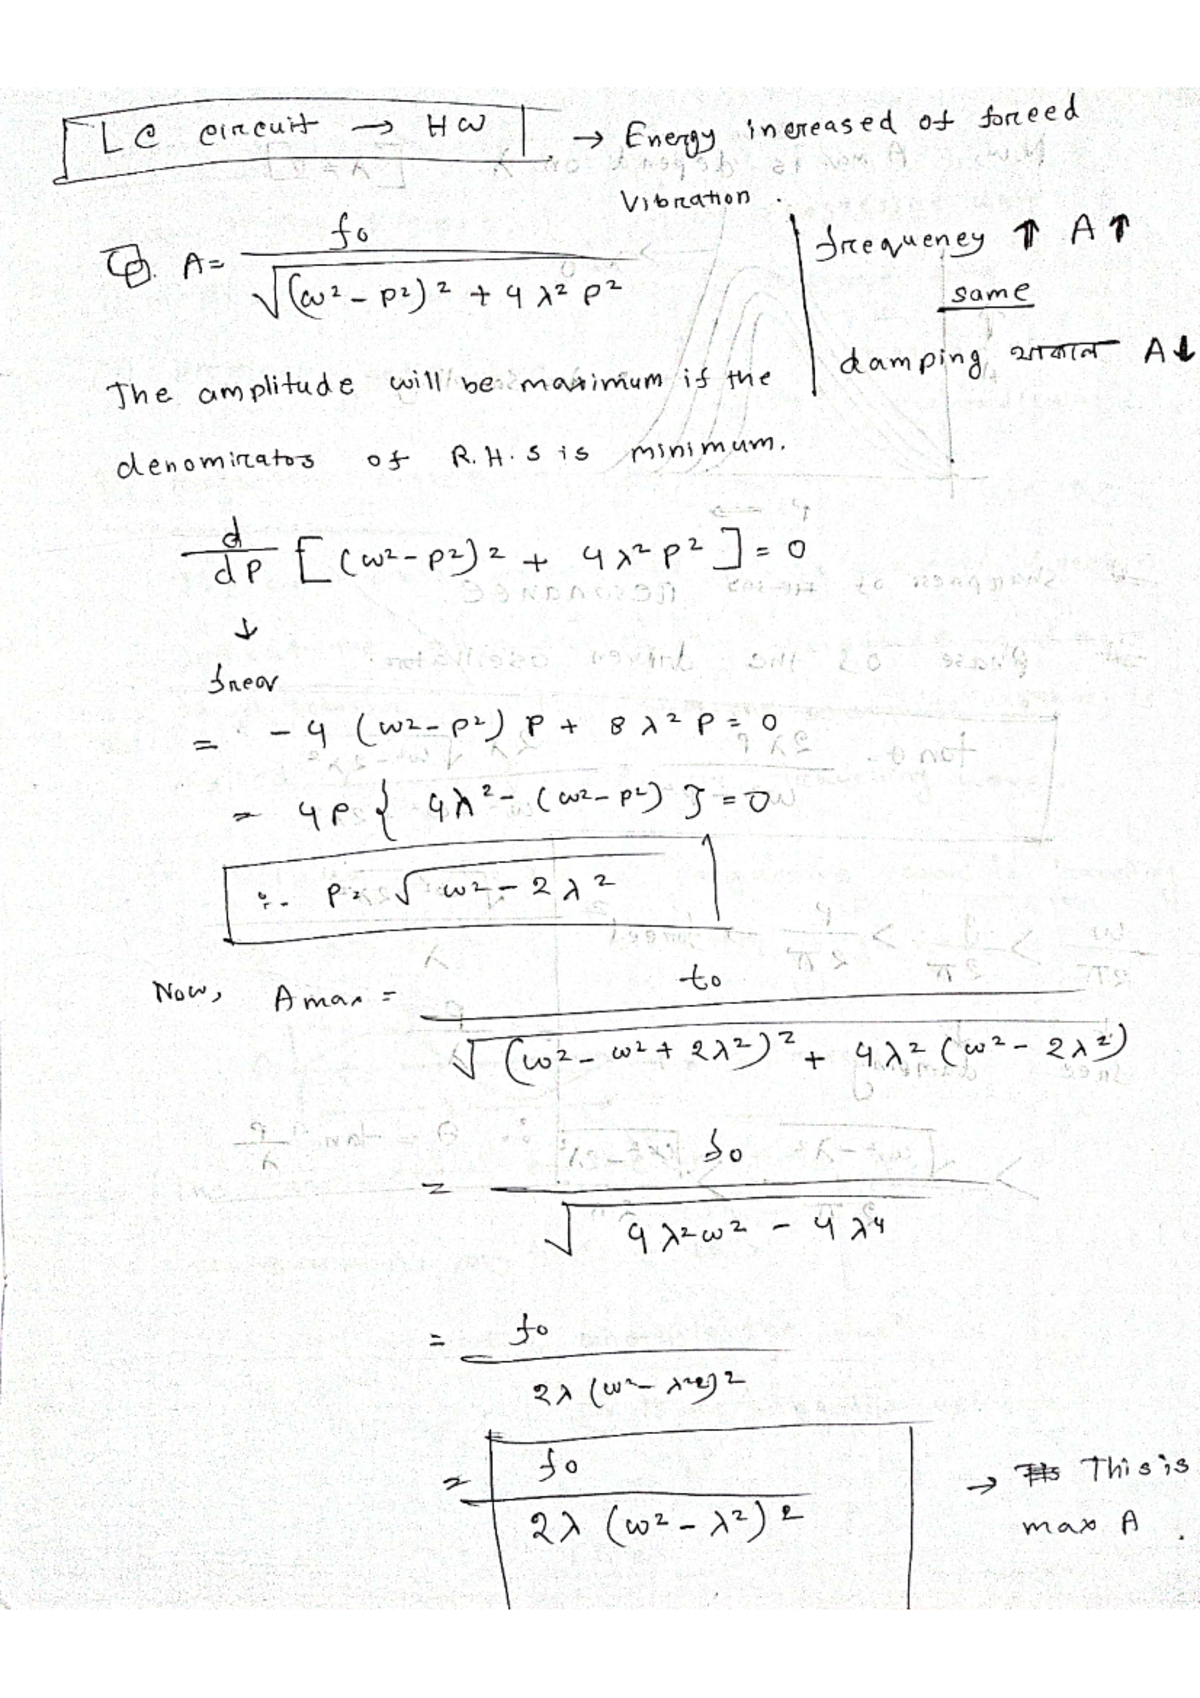 LC circuit → HW → Energy increased of forced
vibration.
A = f0 / √((ω² - p²)² + 4λ²p²)
frequency ↑ A↑
same
damping থাকলে A↓
The amplitude will be maximum if the
denominator of R.H.S is minimum.
d/dp [(ω² - p²)² + 4λ²p²] = 0
↓
= -4 (ω² - p²) p + 8λ²p = 0
= 4p { 4λ² - (ω² - p²) } = 0
∴ p = √(ω² - 2λ²)
Now, A max = f0 / √((ω² - ω² + 2λ²)² + 4λ² (ω² - 2λ²))
= f0 / √(4λ²ω² - 4λ⁴)
= f0 / 2λ (ω² - λ²)²
= f0 / 2λ (ω² - λ²)²
→ This is
max A.